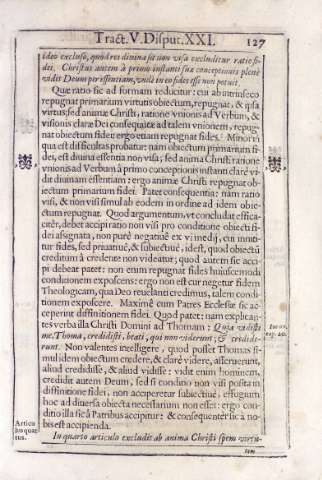 Tract. V. Disput. XXI. 127
ideo excluso, quod res divina sit non visa excluditur ratio fi-
dei. Christus autem à primo instanti suæ conceptionis plenè
vidit Deum per essentiam, unde in eo fides esse non potuit.
Quæ ratio sic ad formam reducitur: cui ab intrinseco
repugnat primarium virtutis obiectum, repugnat, & ipsa
virtus; sed animæ Christi, ratione vnionis ad Verbum, &
visionis claræ Dei consequutæ ad talem vnionem, repug-
nat obiectum fidei: ergo etiam repugnat fides. Minor in
qua est difficultas probatur: nam obiectum primarium fi-
dei, est divina essentia non visa; sed anima Christi ratione
vnionis ad Verbum à primo conceptionis instanti clarè vi-
dit divinam essentiam: ergo animæ Christi repugnat ob-
iectum primarium fidei. Patet consequentia: nam ratio
visi, & non visi simul ab eodem in ordine ad idem obie-
ctum repugnat. Quod argumentum, vt concludat effica-
citèr, debet accipi ratio non visi pro conditione obiecti fi-
dei assignata, non purè negativè ex vi medij, cui inniti-
tur fides, sed privativè, & subiectivè, idest, quod obiectũ
creditum à credente non videatur; quod autem sic acci-
pi debeat patet: non enim repugnat fides huiuscemodi
conditionem exposcens: ergo non est cur negetur fidem
Theologicam, qua Deo revelanti credimus, talem condi-
tionem exposcere. Maximè cum Patres Ecclesiæ sic ac-
ceperint diffinitionem fidei. Quod patet: nam explican-
tes verba illa Christi Domini ad Thomam: Quia vidisti
me, Thoma, credidisti, beati, qui non viderunt, & credide-
runt. Non valentes intelligere, quod posset Thomas si-
mul idem obiectum credere, & clarè videre, asseruerunt,
aliud credidisse, & aliud vidisse: vidit enim hominem,
credidit autem Deum, sed si conditio non visi posita in
diffinitione fidei, non acciperetur subiectivè, effugium
hoc ad diversa obiecta necessarium non esset: ergo con-
ditio illa sic à Patribus accipitur: & consequenter sic à no-
bis est accipienda.
In quarto articulo excludit ab anima Christi spem virtu-
tem
Ioann.
cap. 20.
Articu
lus quar
tus.